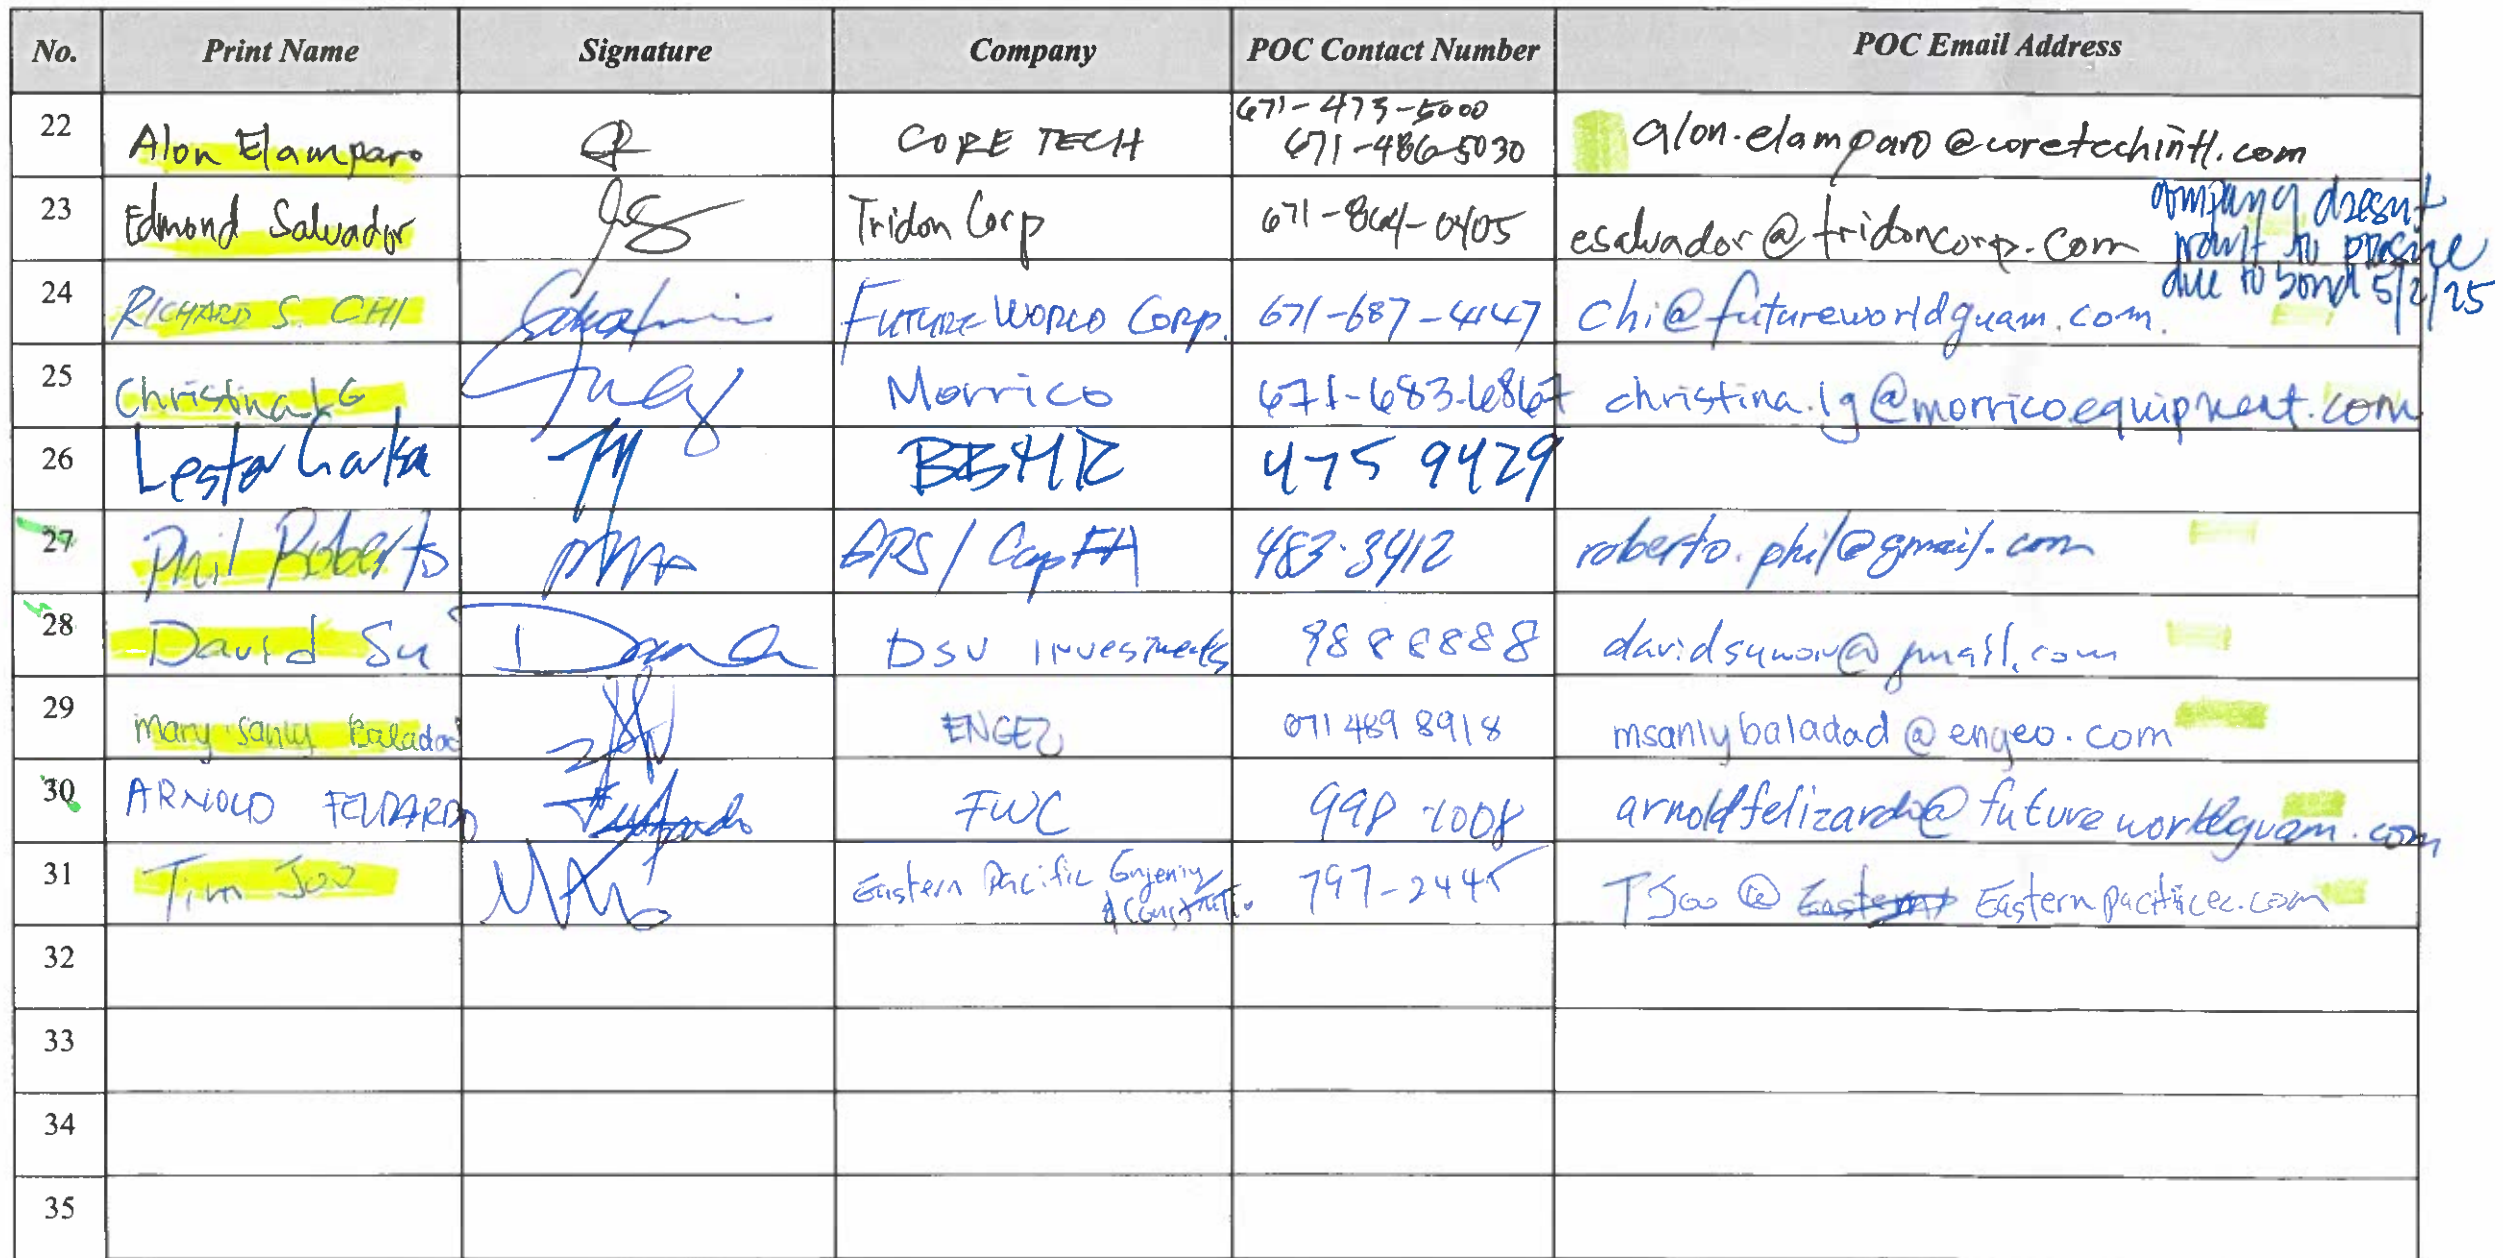 No. Print Name Signature Company POC Contact Number POC Email Address
671-473-5000
22 Alon Elamparo CORE TECH 671-486-5030 alon.elamparo@coretechintl.com
23 Edmond Salvador Tridon Corp 671-864-0405 esalvador@tridoncorp.com
company doesn't
want to
due to bond 5/2/25
24 RICHARD S. CHI FUTURE WORLD CORP. 671-687-4147 chi@futureworldguam.com.
25 Christina LG Morrico 671-683-6867 christina.lg@morricoequipment.com
26 Lester 475 9429
27 Phil Roberto / 483-3412 roberto.phil@gmail.com
28 David Su DSU Investments 9888888 @gmail.com
29 Mary Sanly Baladad ENGEO 671 489 8918 msanlybaladad@engeo.com
30 ARNOLD FWC 998-1008 arnoldfelizardo@futureworldguam.com
31 Tim Joo Eastern Pacific 797-2445 TJoo@ Easternpacificec.com
32
33
34
35